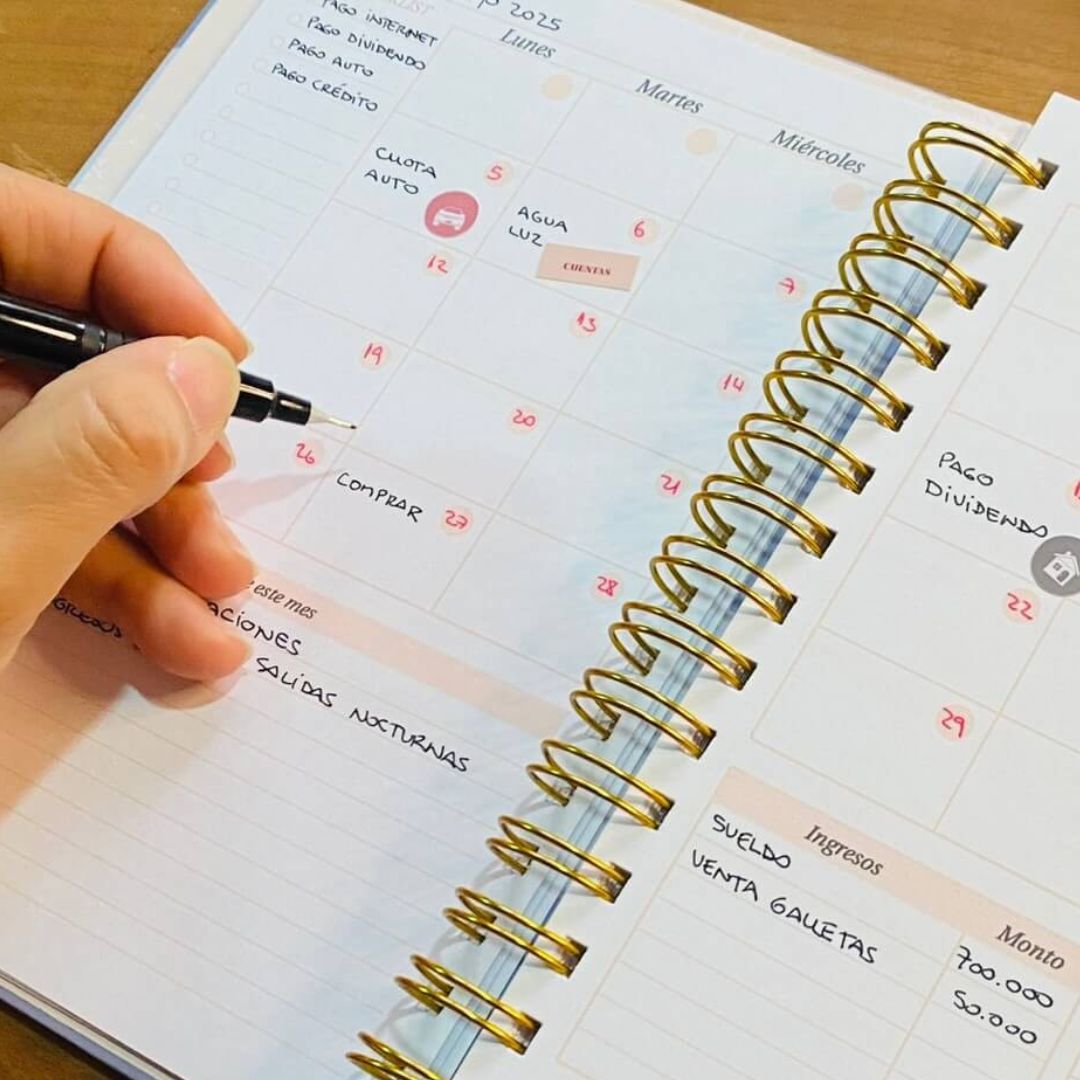 2025
PAGO INTERNET
PAGO DIVIDENDO
PAGO AUTO
PAGO CRÉDITO
Lunes
Martes
Miércoles
CUOTA
AUTO
5
AGUA
LUZ
6
CUENTAS
7
12
13
14
19
20
21
26
COMPRAR
27
28
este mes
SALIDAS NOCTURNAS
PAGO
DIVIDENDO
22
29
Ingresos
Monto
SUELDO
700.000
VENTA GALLETAS
50.000